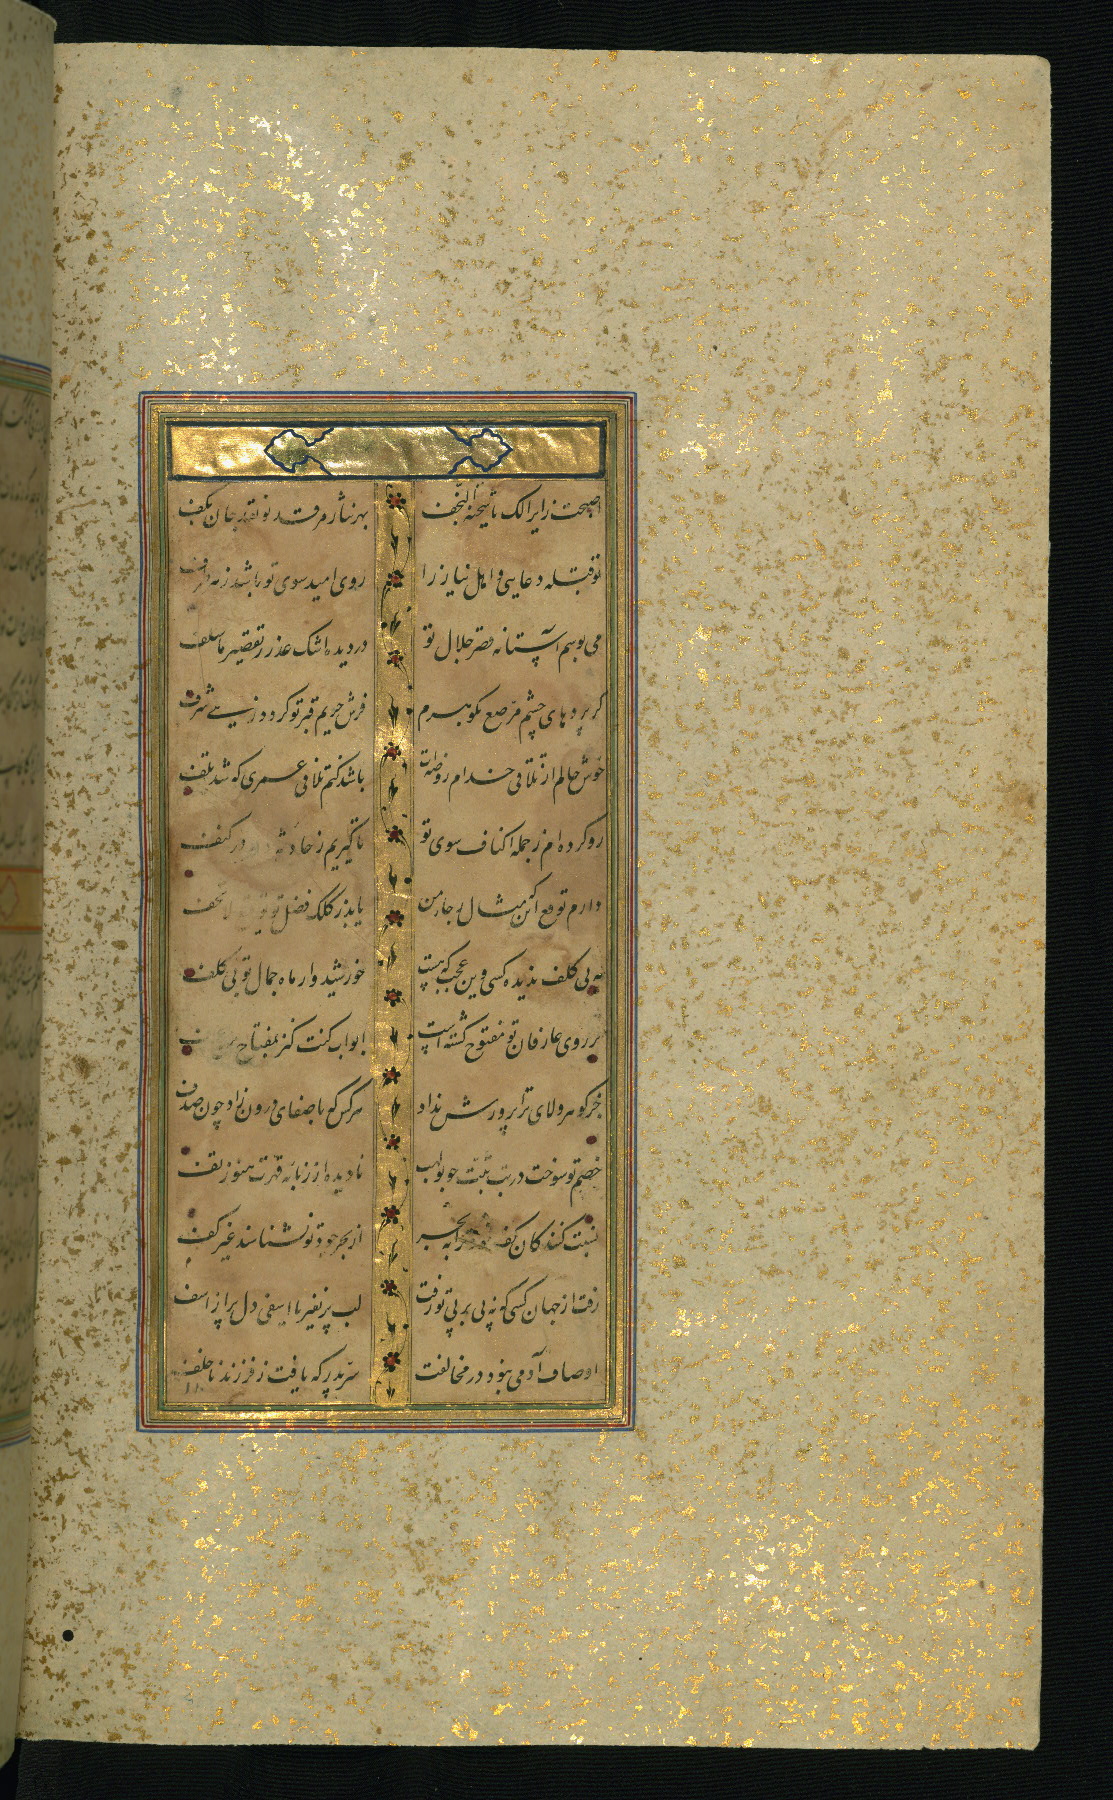 اصبحت زایرا لک یا شحنة النجف بهر نثار مرقد تو نقد جان بکف
تو قبله دعایی و اهل نیاز را روی امید سوی تو باشد ز هر طرف
می بوسم آستانه قصر جلال تو در دیده اشک عذر ز تقصیر ما سلف
گر پرده‌های چشم مرصع بگوهرم فرش حریم قبر تو گردد زهی شرف
خوش حالم از تلاقی خدام روضه‌ات باشد کنم تلافی عمری که شد تلف
رو کرده‌ام ز جمله اکناف سوی تو تا گیریم ز حادثه در کنف
دارم توقع آنکه مثال رجاء من یابد ز کلک فضل تو توقیع لاتخف
مه بی کلف ندیده کسی وین عجب که هست خورشیدوار ماه جمال تو بی کلف
بر روی عارفان تو مفتوح گشته است ابواب کنت کنز بمفتاح من عرف
جز گوهر ولای ترا پرورش نداد هر کس که با صفای درون زاد چون صدف
خصم تو سوخت در تب تبت چو بولهب نادیده از زبانه قهرت هنوز تف
نسبت کنندگان کف را به بحر از بحر جود تو نشناسند غیر کف
رفت از جهان کسی که نه پی بر پی تو رفت لب پر نفیر یا اسفی دل پر از اسف
اوصاف آدمی نبود در مخالفت سر پدر که یافت ز فرزند ناخلف